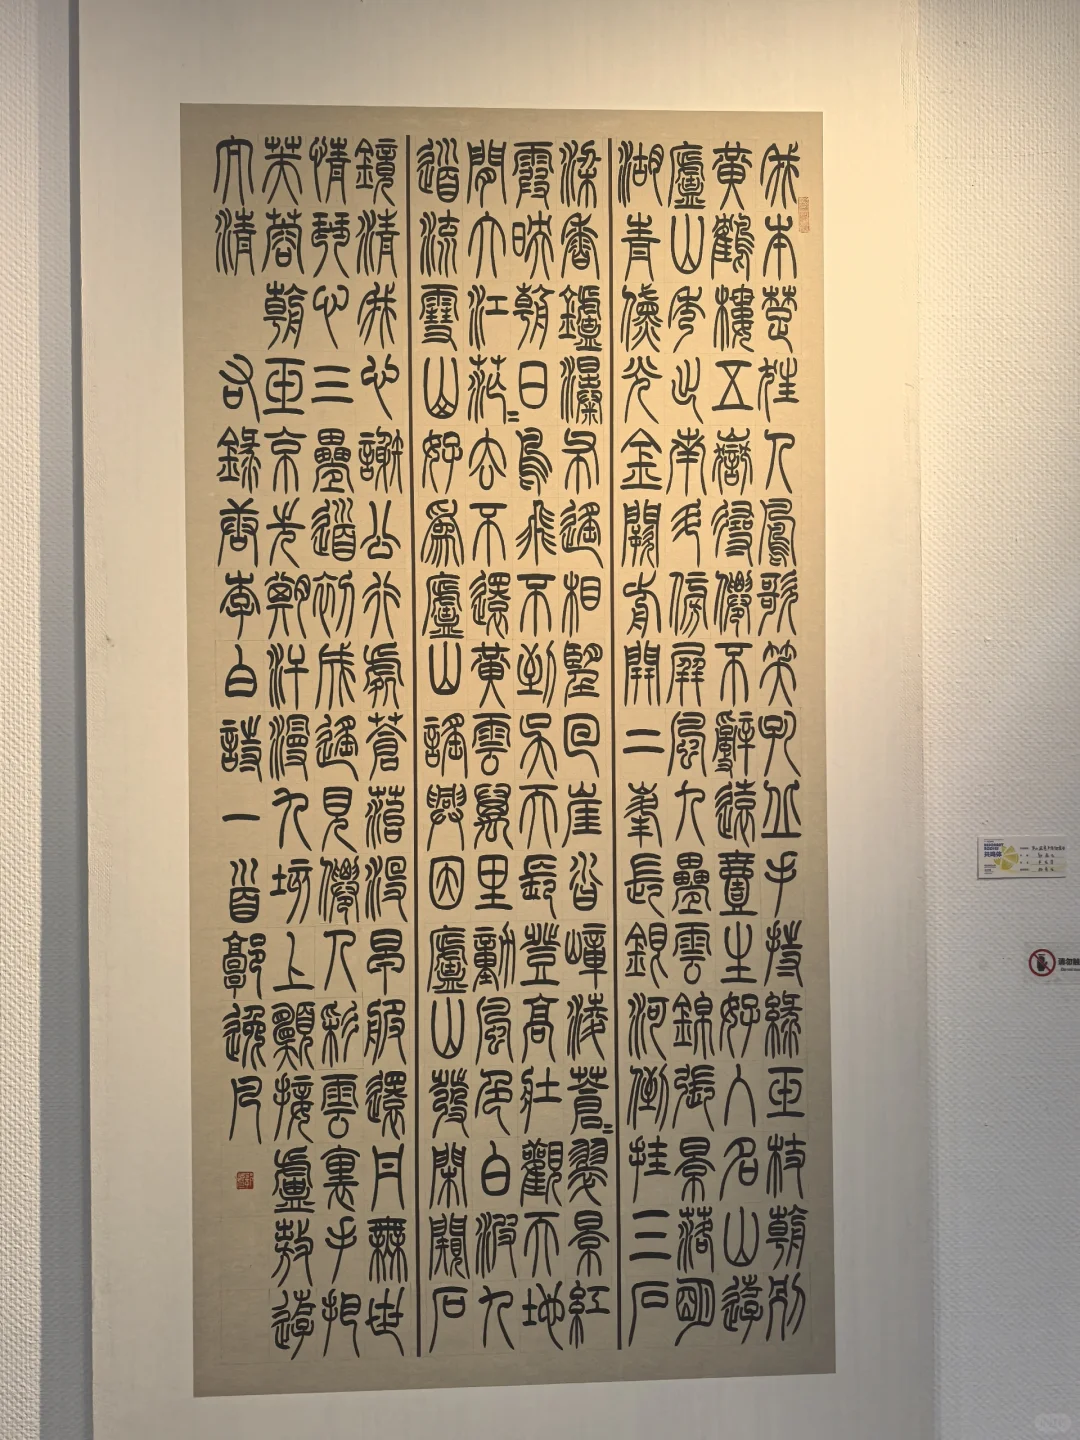 我本楚狂人鳳歌笑孔丘手持綠玉杖朝別
黃鶴樓五嶽尋僊不辭遠壹生好入名山遊
廬山秀出南斗傍屏風九疊雲錦張景落明
湖青黛光金闕前開二峯長銀河倒挂三石
梁香鑪瀑布遙相望回崖沓嶂凌蒼〻翠景紅
霞映朝日鳥飛不到吳天長登高壯觀天地
間大江茫〻去不還黃雲萬里動風色白波九
道流雪山好為廬山謠興因廬山發閑闚石
鏡清我心謝公行處蒼苔沒早服還丹無世
情琴心三疊道初成遙見僊人彩雲裏手把
芙蓉朝玉京先期汗漫九垓上願接盧敖遊
太清 右錄唐李白詩一首郭逸
请勿触